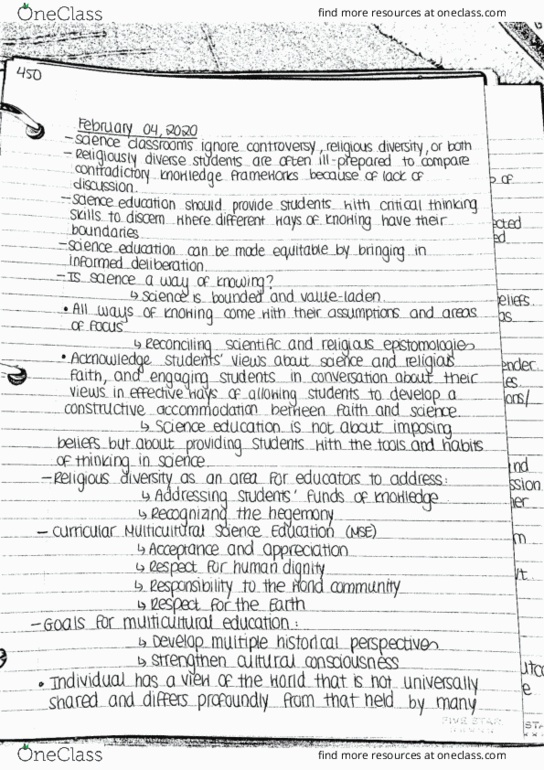 OneClass
find more resources at oneclass.com
450
February 04, 2020
- Science classrooms ignore controversy, religious diversity, or both
- Religiously diverse students are often ill-prepared to compare
contradictory knowledge frameworks because of lack of
discussion.
- Science education should provide students with critical thinking
skills to discern where different ways of knowing have their
boundaries
- Science education can be made equitable by bringing in
informed deliberation.
- Is science a way of knowing?
↳ Science is bounded and value-laden
• All ways of knowing come with their assumptions and areas
of focus
↳ Reconciling scientific and religious epistomologies
• Acknowledge students' views about science and religious
faith, and engaging students in conversation about their
views in effective ways of allowing students to develop a
constructive accommodation between faith and science.
↳ Science education is not about imposing
beliefs but about providing students with the tools and habits
of thinking in science.
- Religious diversity as an area for educators to address:
↳ Addressing students' funds of knowledge
↳ Recognizing the hegemony
- Curricular Multicultural Science Education (MSE)
↳ Acceptance and appreciation
↳ Respect for human dignity
↳ Responsibility to the world community
↳ Respect for the Earth
- Goals for multicultural education:
↳ Develop multiple historical perspectives
↳ Strengthen cultural consciousness
• Individual has a view of the world that is not universally
shared and differs profoundly from that held by many
FIVE STAR
OneClass
find more resources at oneclass.com